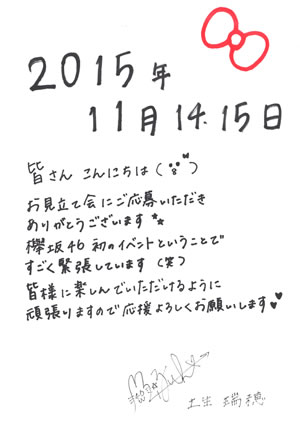 2015年
11月14.15日
皆さん こんにちは
お見立て会にご応募いただき
ありがとうございます
欅坂46初のイベントということで
すごく緊張しています(笑)
皆様に楽しんでいただけるように
頑張りますので応援よろしくお願いします
土生 瑞穂